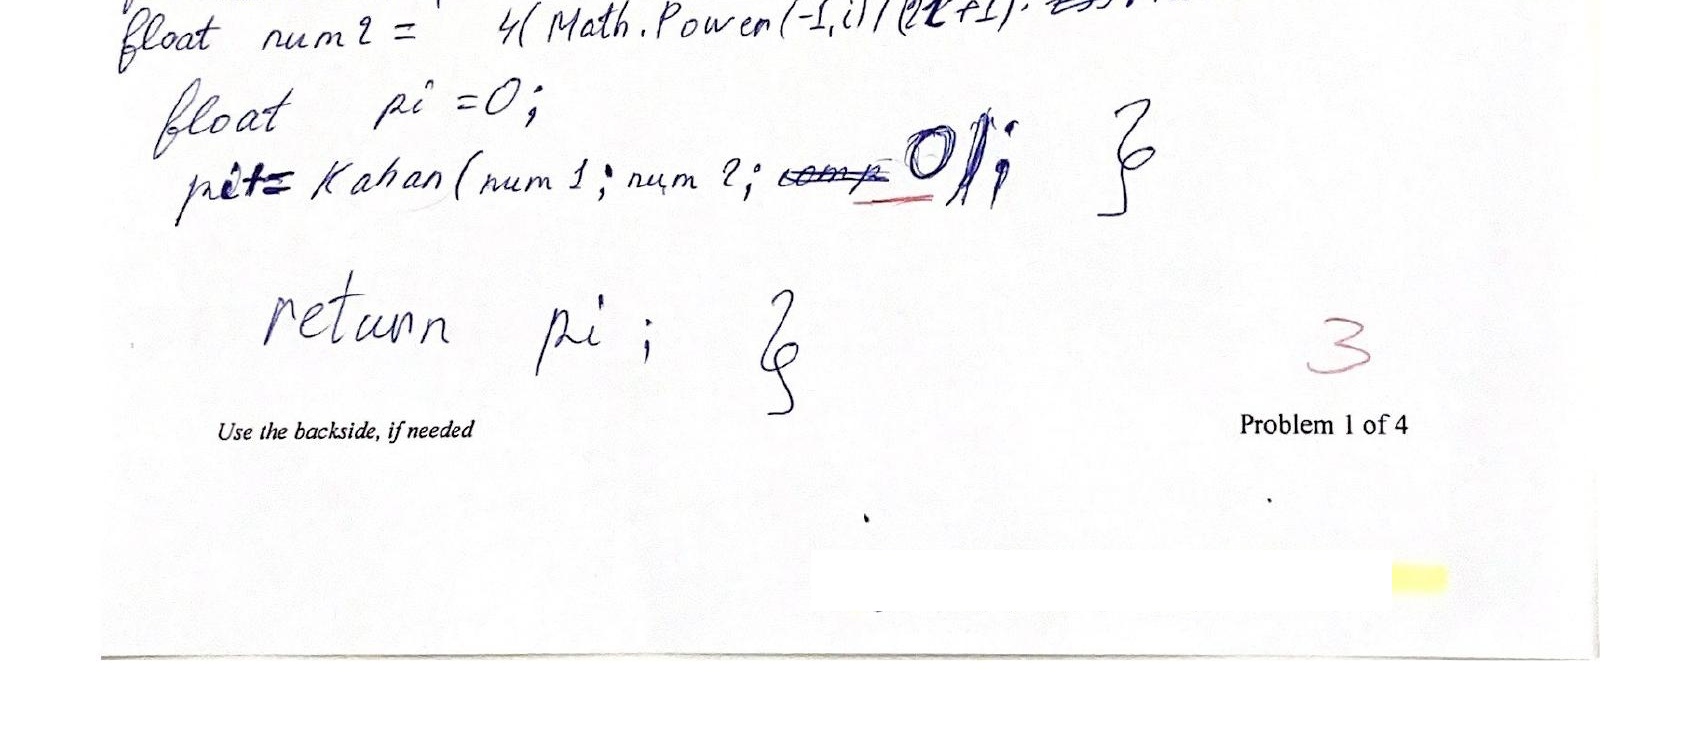 float num2 = 4( Math.Power(-1,i)/(2i+1).
float pi =0;
pi+= Kahan(num 1; num 2; comp 0); }
return pi; }
3
Use the backside, if needed
Problem 1 of 4